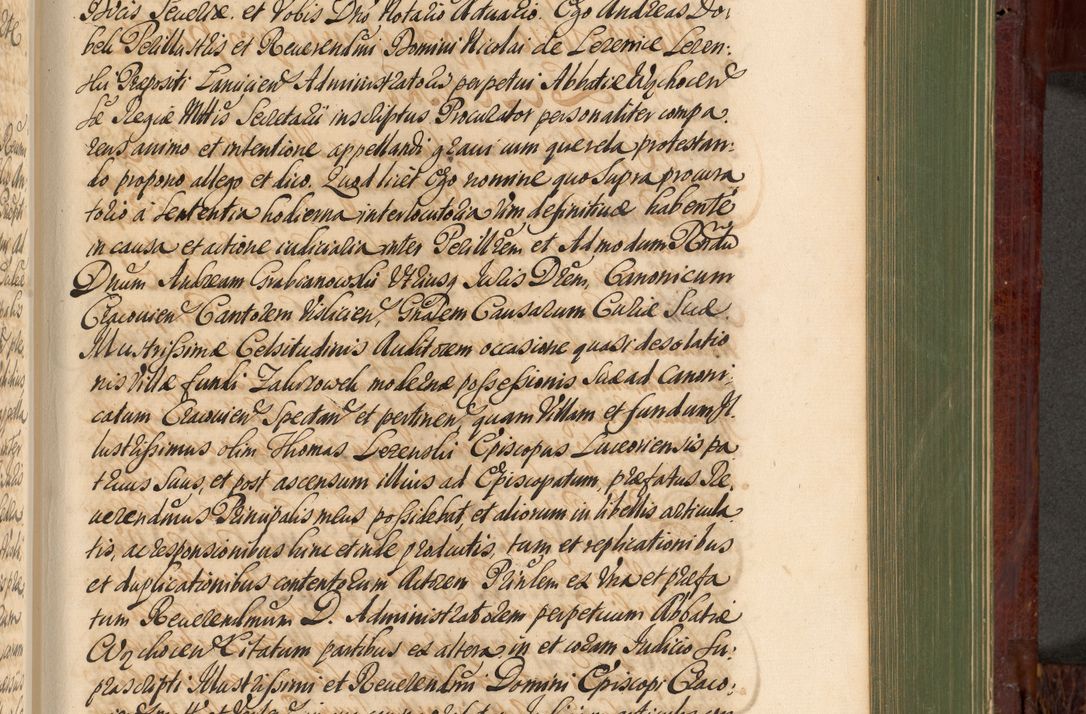 Ducis Severiæ. et Vobis Dnō Notario Actuario. Ego Andreas Do:
bek Perillustris et Reverendimi Domini Nicolai de Lezenice Lezen:
ski Præpositi Lanicien Administratoris perpetui Abbatiæ Wąchocen
Sæ Regiæ Mttis Secretarii inscriptus Procurator personaliter compa:
rens animo et intentione appellandi gravi cum querela protestan:
do propono allego et dico. Quod licet Ego nomine quo supra procura
torio à sententia hodierna interlocutoria vim definitivæ habente
in causa et actione iudicialia inter Perillrem et Admodum Rndū
Dnum Andream Grabianowski Utriusq Iuris Drem, Canonicum
Cracovien Cantorem Vislicien, Gnalem Causarum Curiæ Suæ
Illustrissimæ Celsitudinis Auditorem occasione quasi desolatio
nis Villæ fundi Zakrzowek modernæ possessionis suæ ad Canoni:
catum Cracovien Spectan et pertinen, quam Villam et fundum Il
lustrissimus olim Thomas Lezenski Episcopus Luceoriensis pa
truus suus, et post ascensum illius ad Episcopatum, præfatus Re
verendmus Principalis meus possidebat, et aliorum in libellis articula
tis, ac responsionibus hinc et inde productis, tum et replicationibus
et duplicationibus contentorum Actorem Prinlem ex una et præfa
tum Reverendmum D. Administratorem perpetuum Abbatiæ
Wąchocen Citatum partibus ex altera in et coram Iudicio Su:
prascripti Illustrissimi et Reverendmi Domini Episcopi Craco: